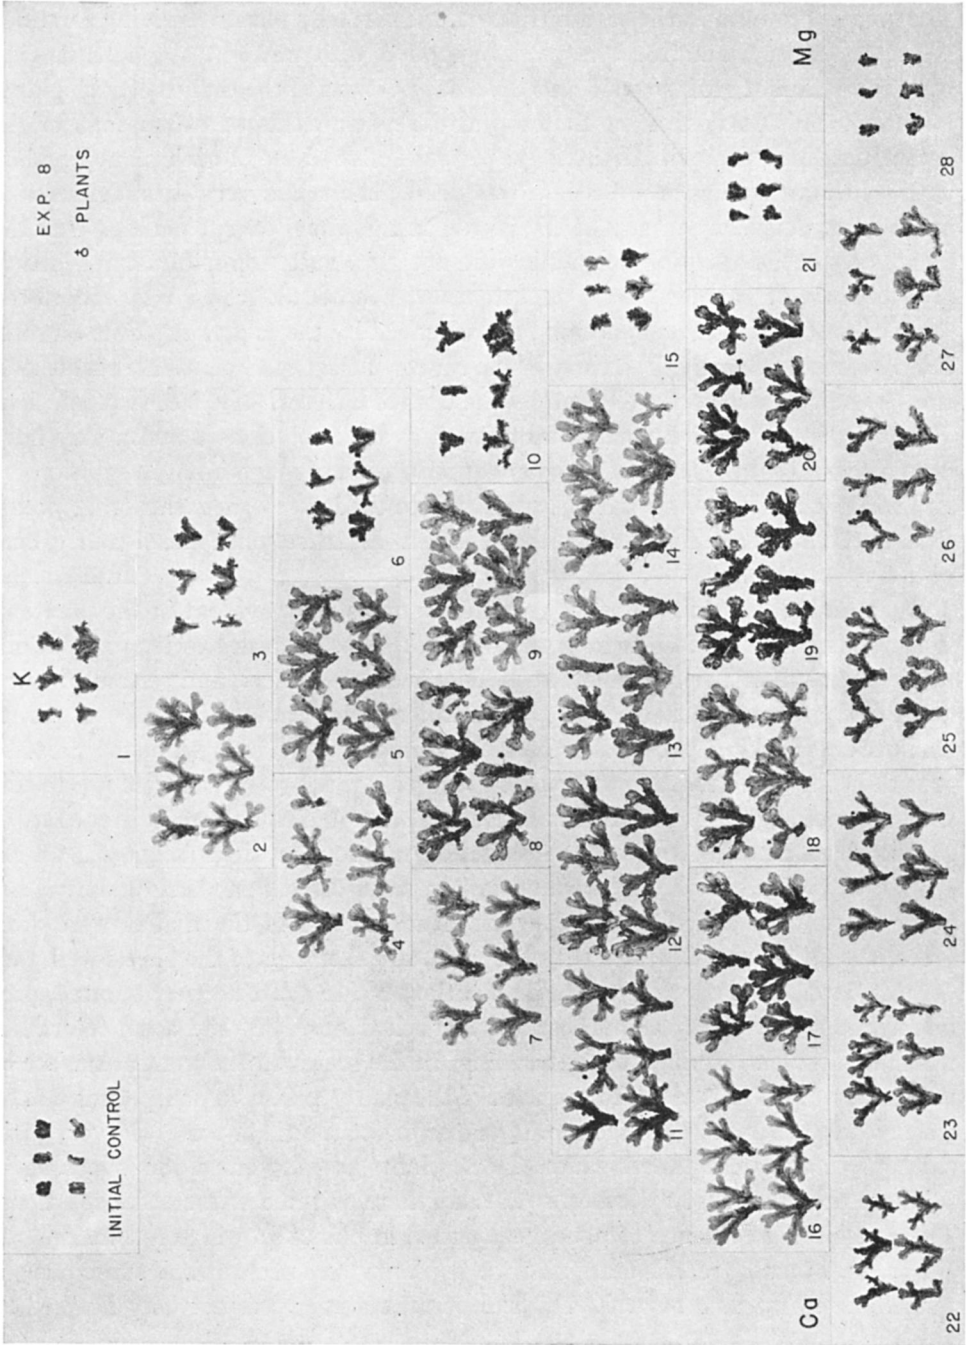 K
EXP. 8
♂ PLANTS
INITIAL CONTROL
1
2
3
4
5
6
7
8
9
10
11
12
13
14
15
16
17
18
19
20
21
Ca
Mg
22
23
24
25
26
27
28